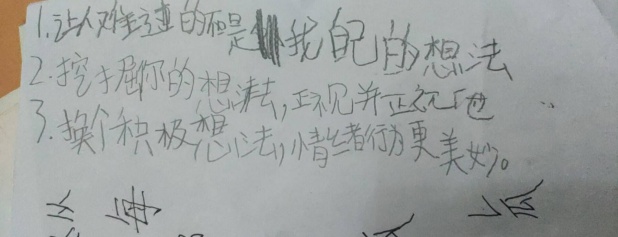 1.让人难过的不是我自己的想法
2.挖掘你的想法,正视并正视它
3.换个积极想心法,情绪行为更美妙。